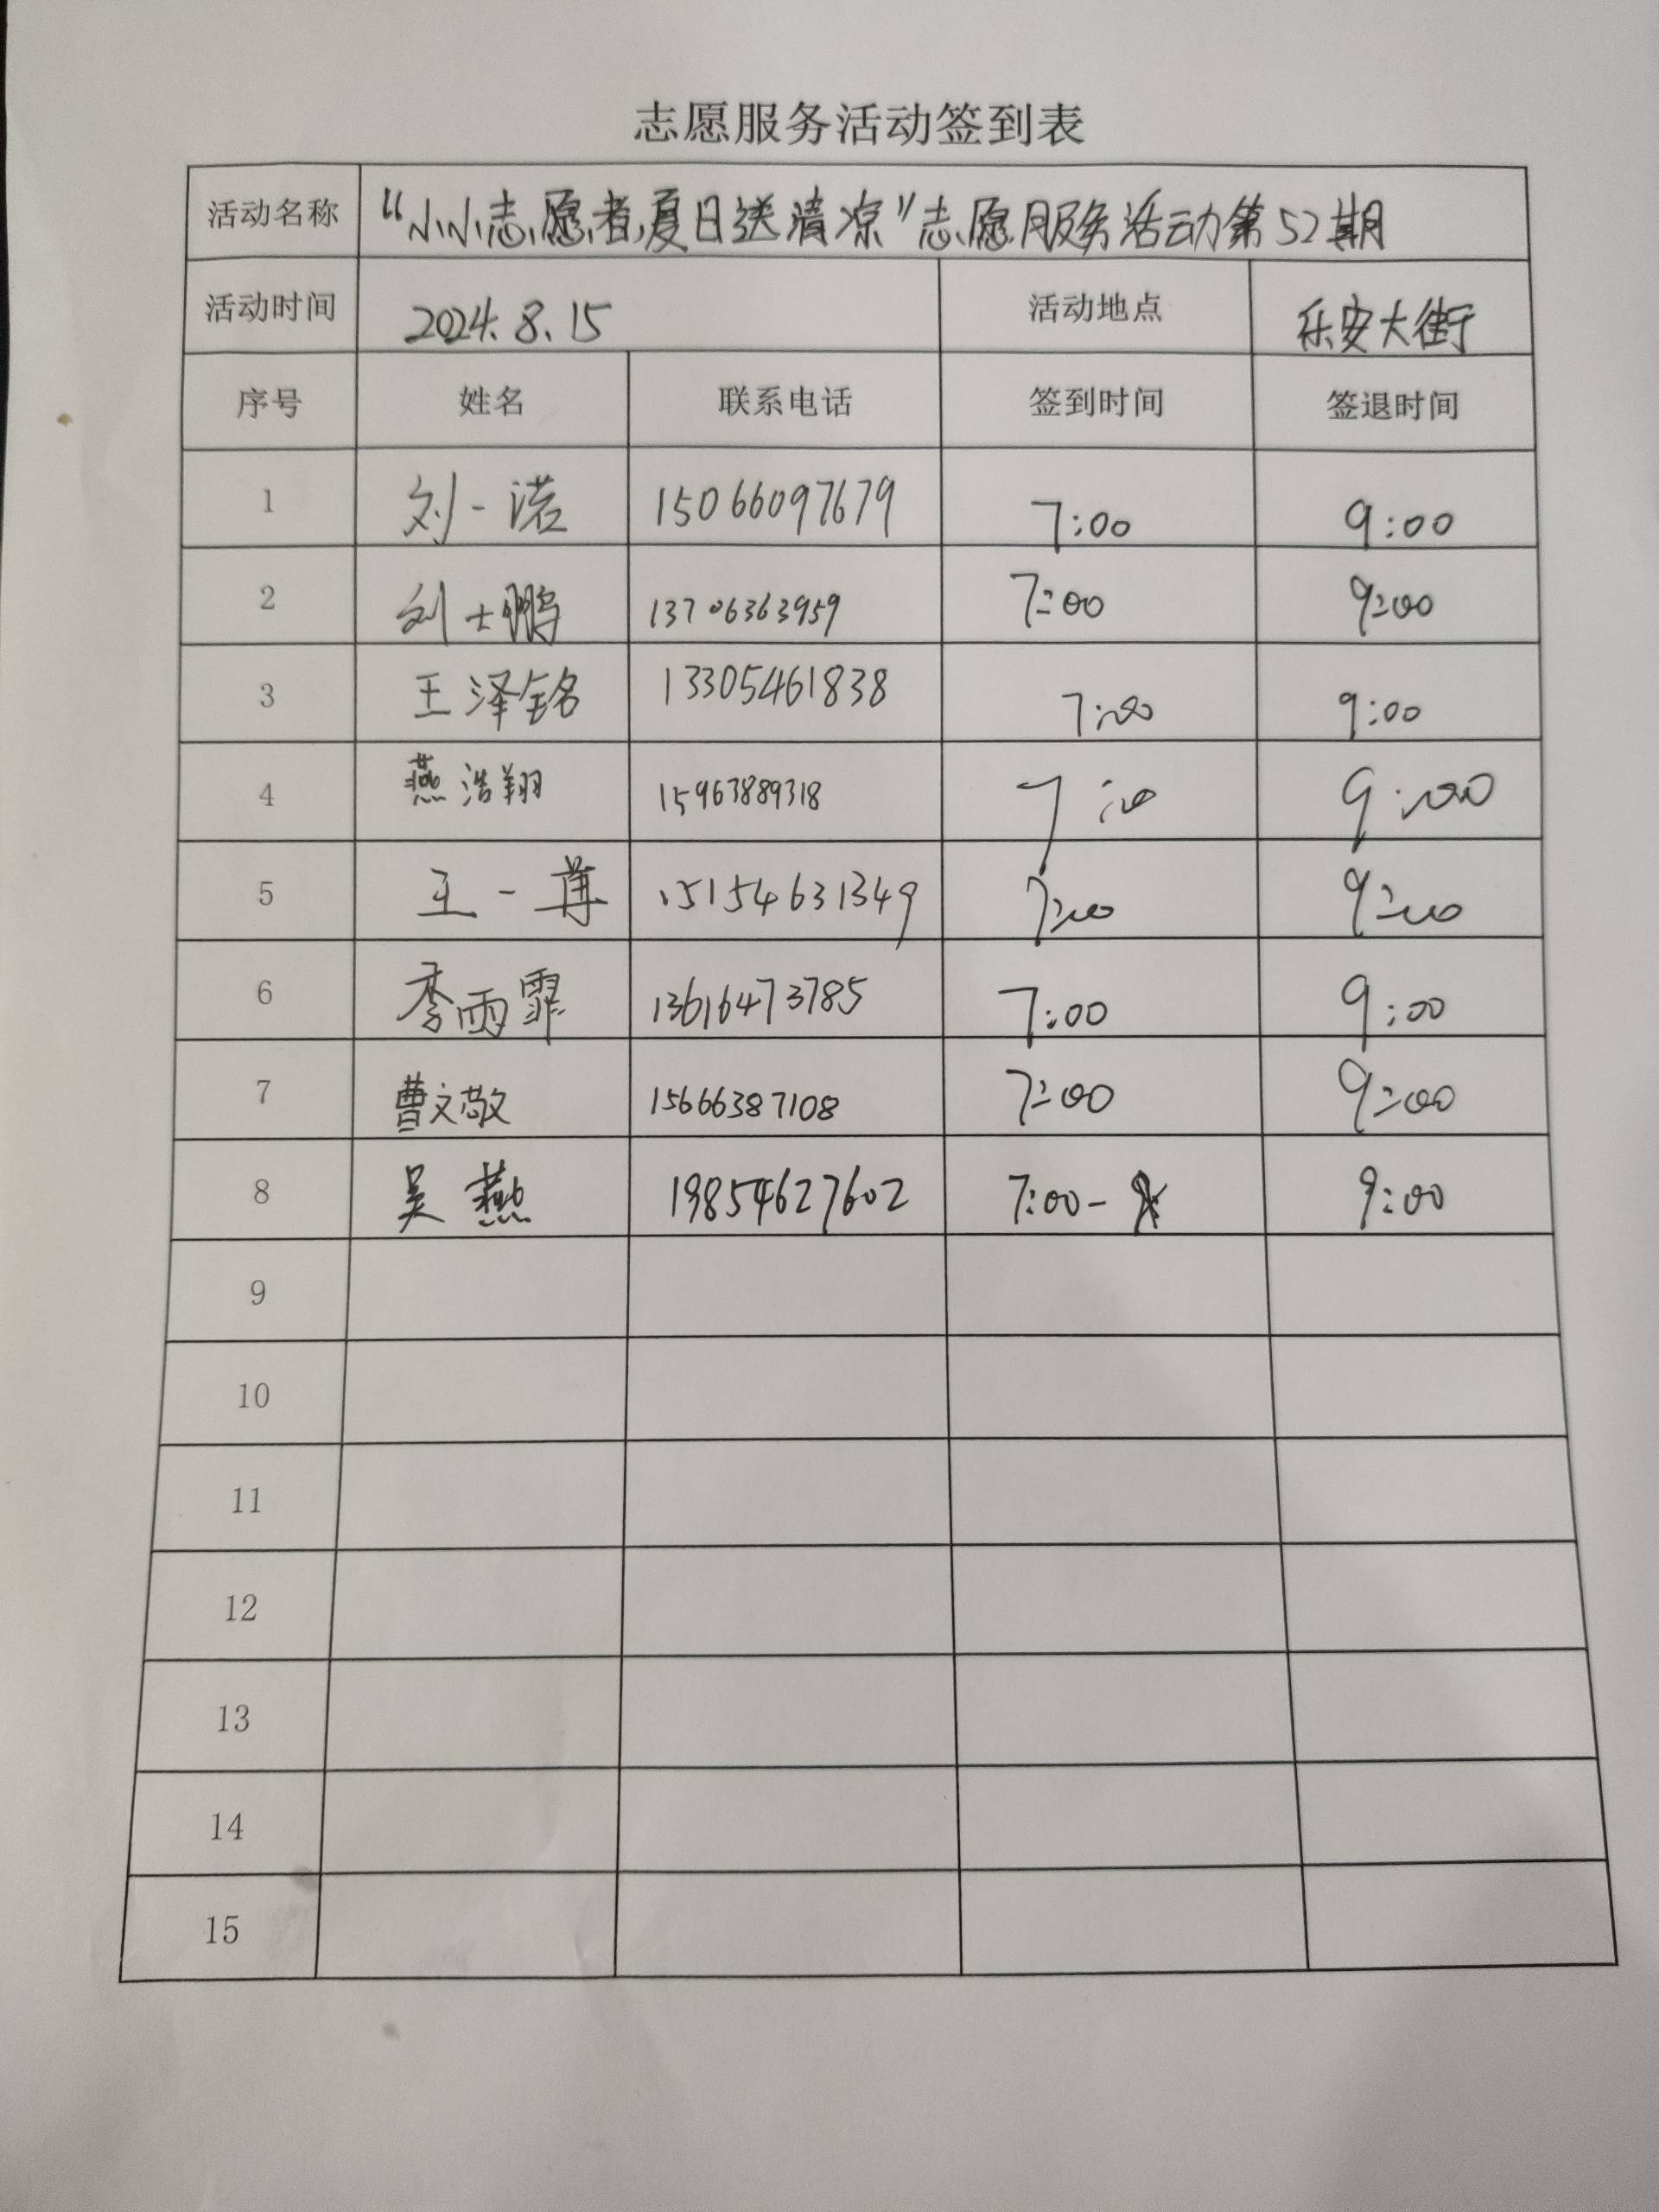 志愿服务活动签到表
活动名称 “小小志愿者,夏日送清凉”志愿服务活动第52期
活动时间 2024.8.15 活动地点 乐安大街
序号 姓名 联系电话 签到时间 签退时间
1 刘一诺 15066097679 7:00 9:00
2 刘士鹏 13706363959 7:00 9:00
3 王泽铭 13305461838 7:00 9:00
4 燕浩翔 15963889318 7:00 9:00
5 王一尊 15154631349 7:00 9:00
6 李雨霏 13616473785 7:00 9:00
7 曹文敬 15666387108 7:00 9:00
8 吴燕 19854627602 7:00- 9:00
9
10
11
12
13
14
15